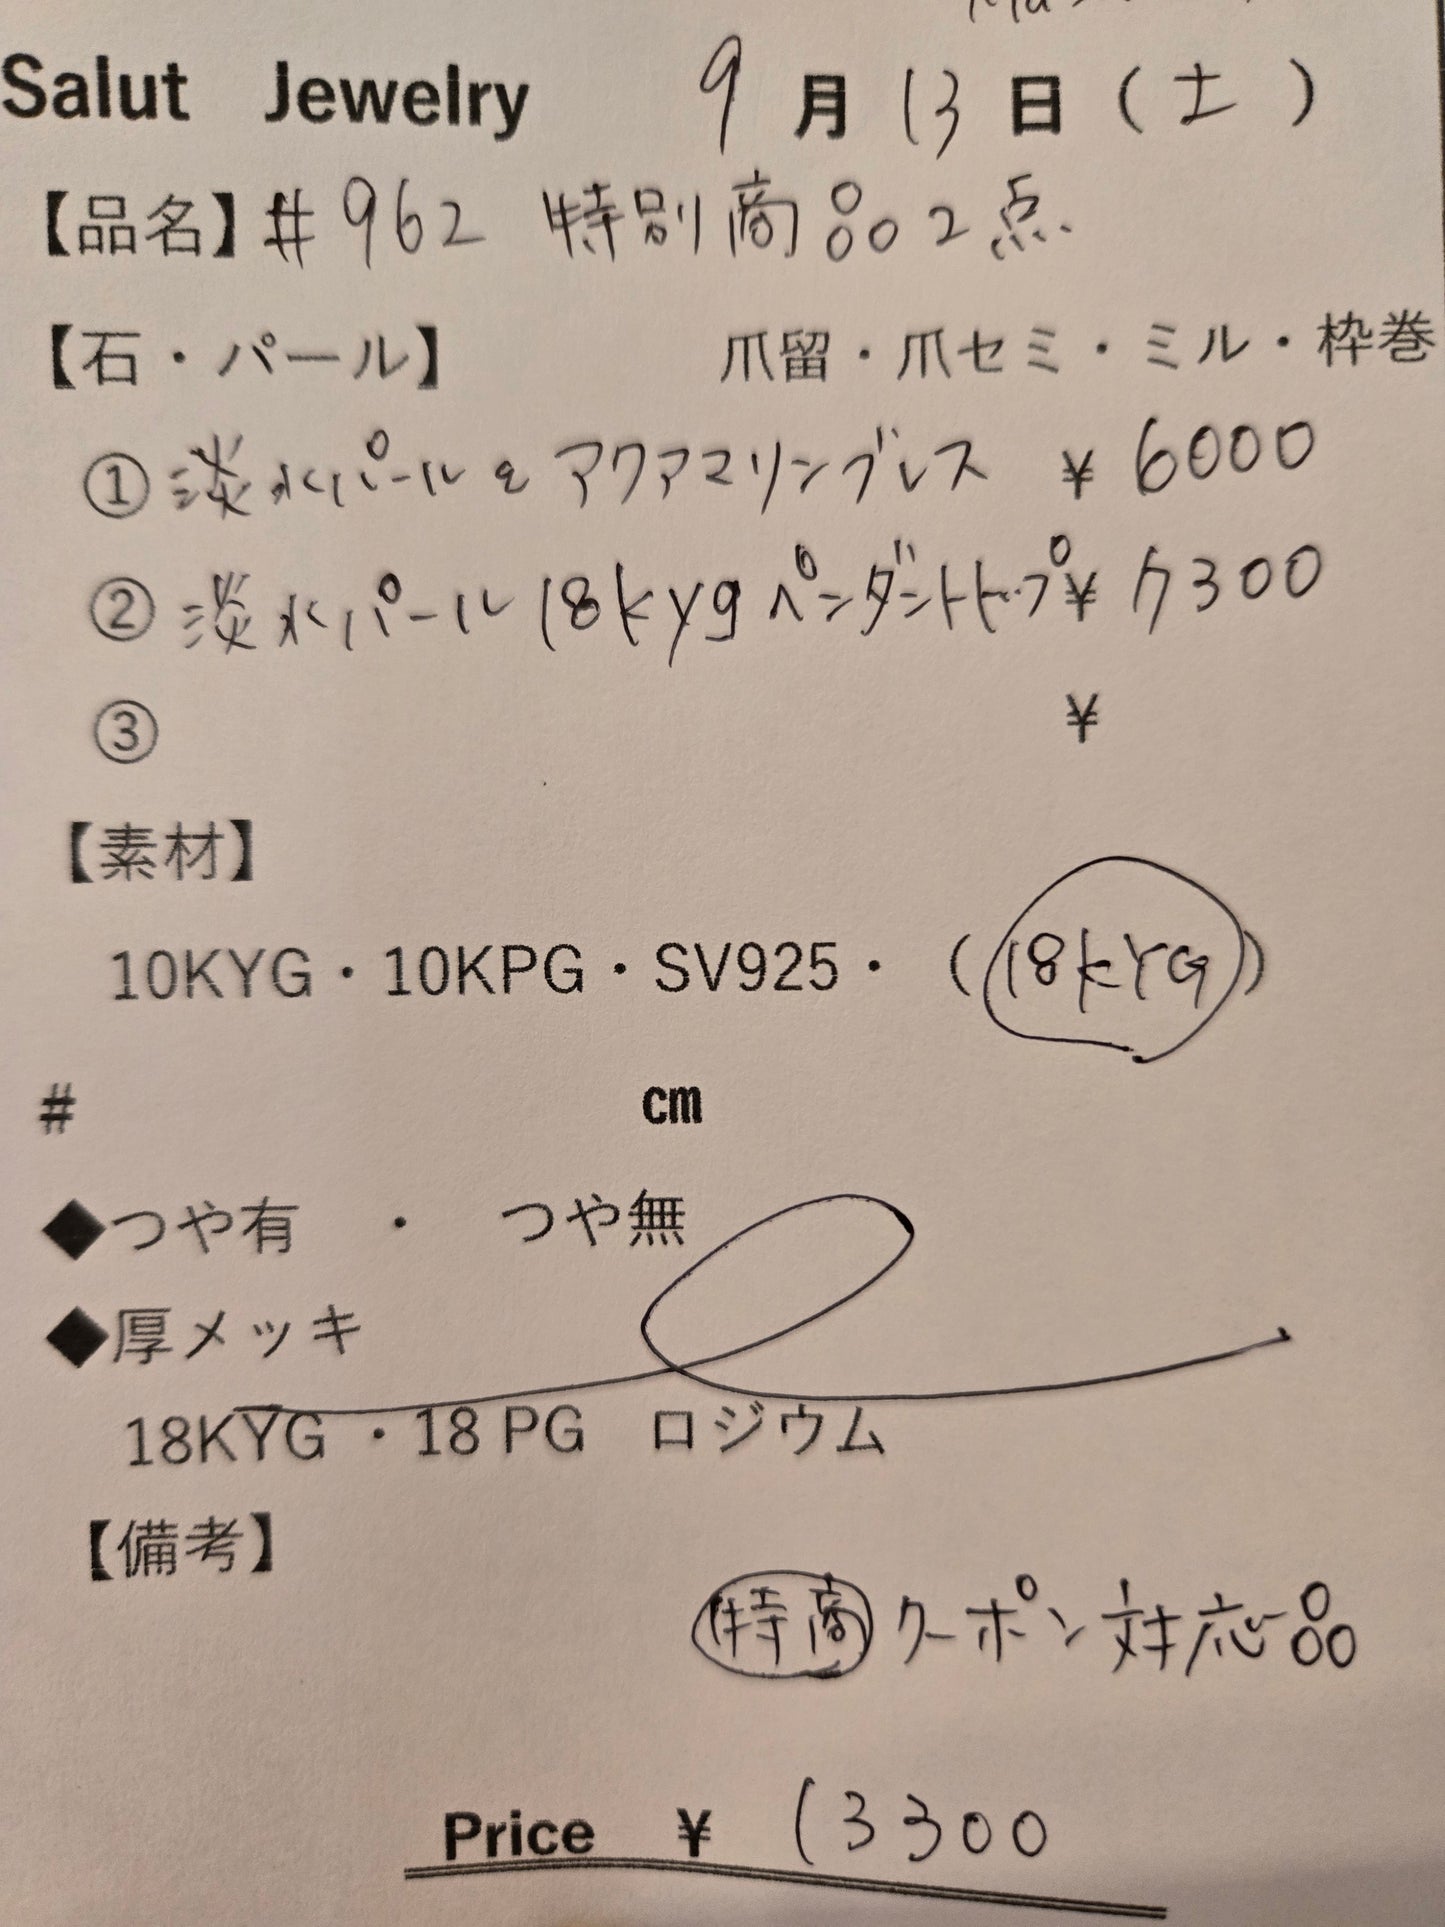 Salut Jewelry 9月13日(土)
【品名】#962 特別商品2点
【石・パール】 爪留・爪セミ・ミル・枠巻
①淡水パール&アクアマリンブレス ¥6000
②淡水パール18kygペンダントトップ¥7300
③ ¥
【素材】
10KYG・10KPG・SV925・(18KYG)
# cm
◆つや有 ・ つや無
◆厚メッキ
18KYG ・18 PG ロジウム
【備考】
特商 クーポン対応品
Price ¥ 13300